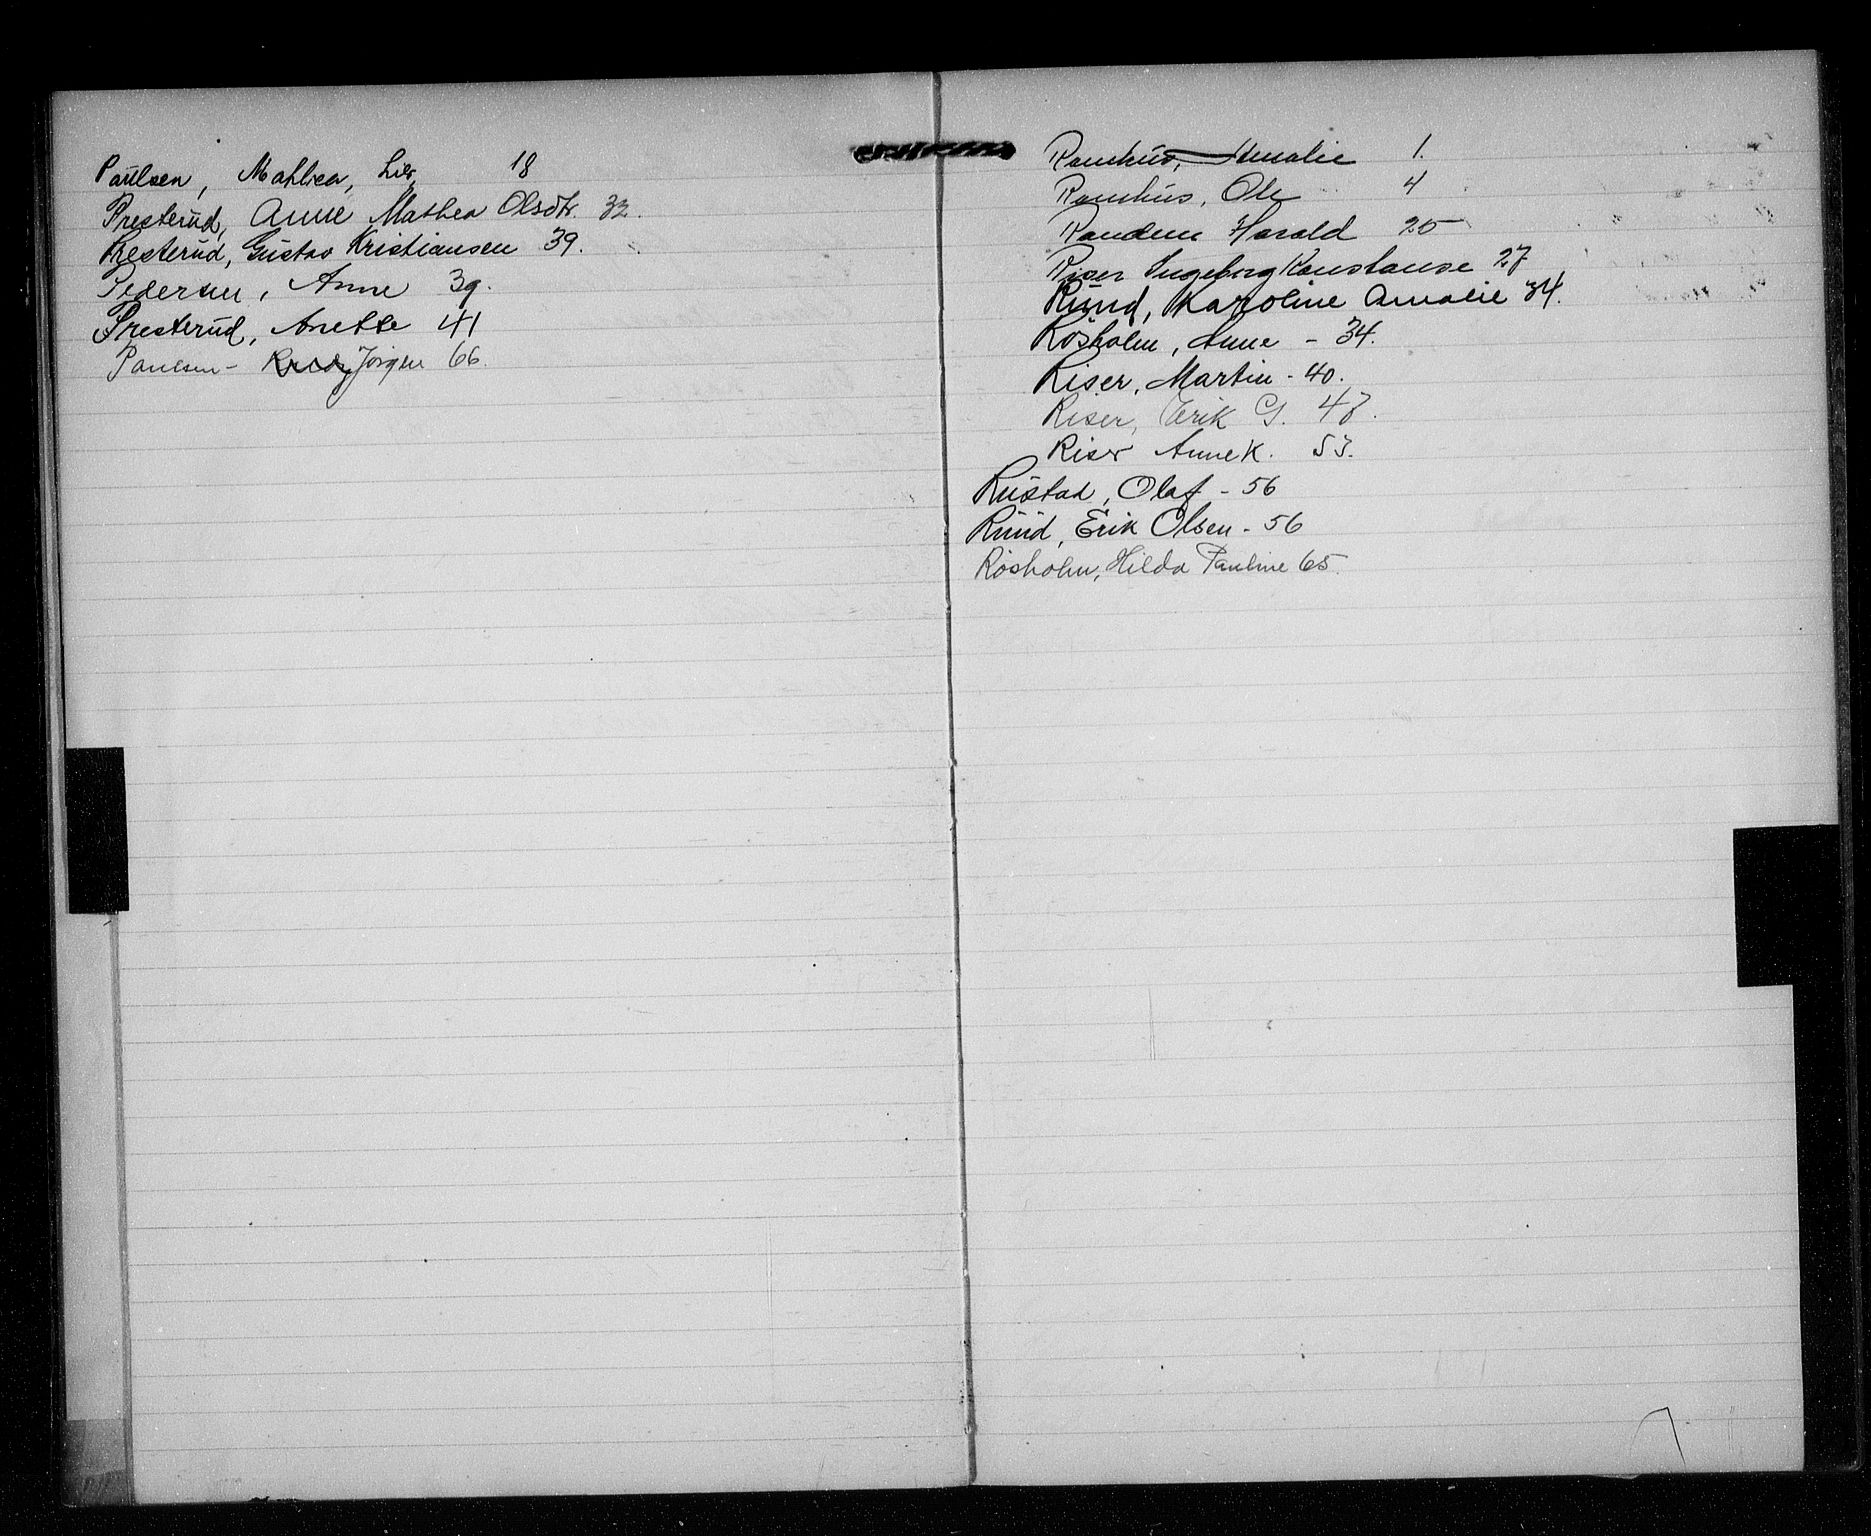 Paulsen, Mathea, Lier, 18
Presterud, Anne Mathea Olsdtr. 32.
Presterud, Gustav Kristiansen 39.
Pedersen, Anne 39.
Presterud, Anette 41
Paulsen - Jörgen 66.
Ramhus, Amalie 1.
Ramhus, Ole 4
Randem Harald 25
Riser Ingeborg Konstanse 27
Ruud, Karoline Amalie 34.
Rösholm, Anne - 34.
Riser, Martin - 40.
Riser, Erik G. 47.
Riser Anne K. 53.
Rustad, Olaf - 56
Ruud, Erik Olsen - 56
Rösholm, Hilda Pauline 65.